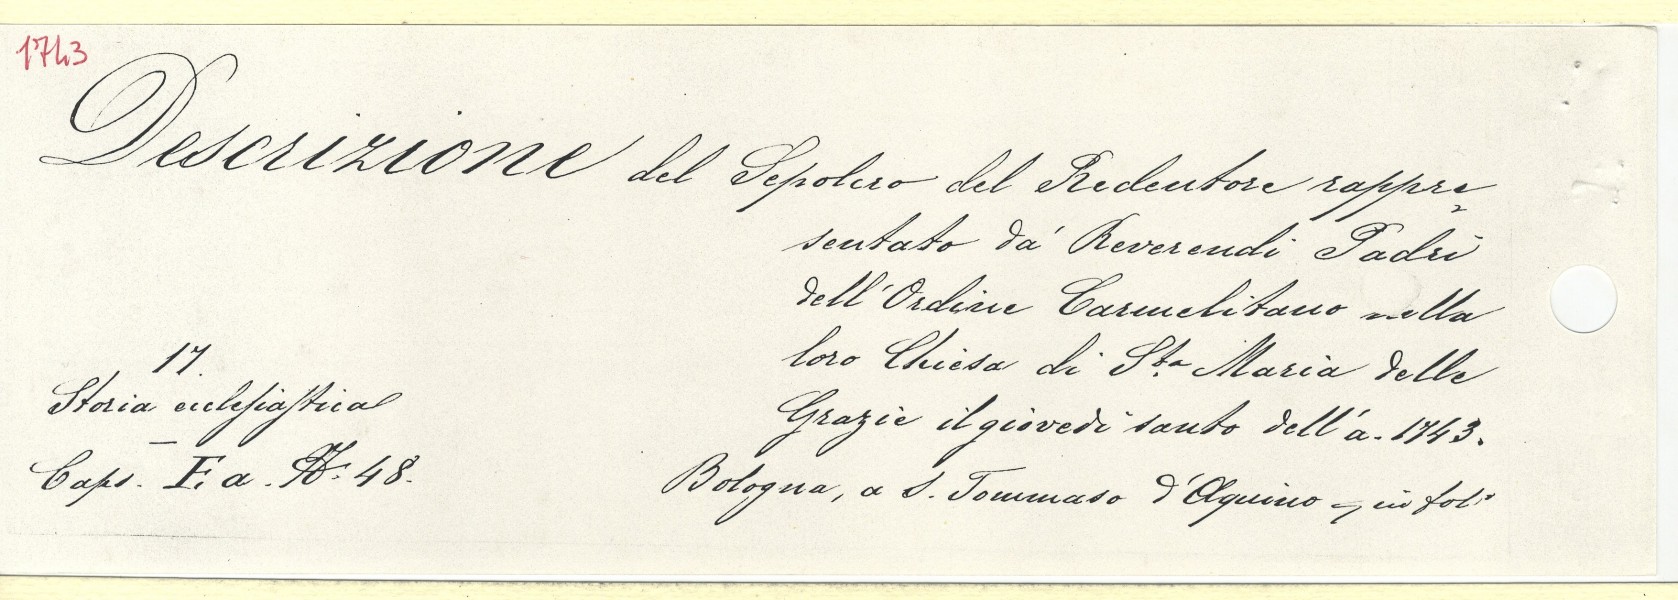 1743
Descrizione del Sepolcro del Redentore rappre=
sentato da' Reverendi Padri
dell'Ordine Carmelitano nella
loro Chiesa di S.ta Maria delle
Grazie il giovedì santo dell'a. 1743.
Bologna, a S. Tommaso d'Aquino in fol.°
17.
Storia ecclesiastica
Caps. F. a. N.° 48.